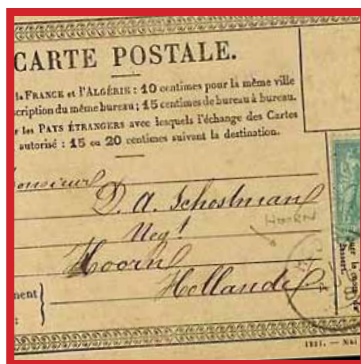 CARTE POSTALE.
la FRANCE et l'ALGÉRIE : 10 centimes pour la même ville
cription du même bureau ; 15 centimes de bureau à bureau.
les PAYS ÉTRANGERS avec lesquels l'échange des Cartes
autorisé : 15 ou 20 centimes suivant la destination.
onsieur
D. A. Schostman
HOORN
Negt
Hoorn
Hollande
ment